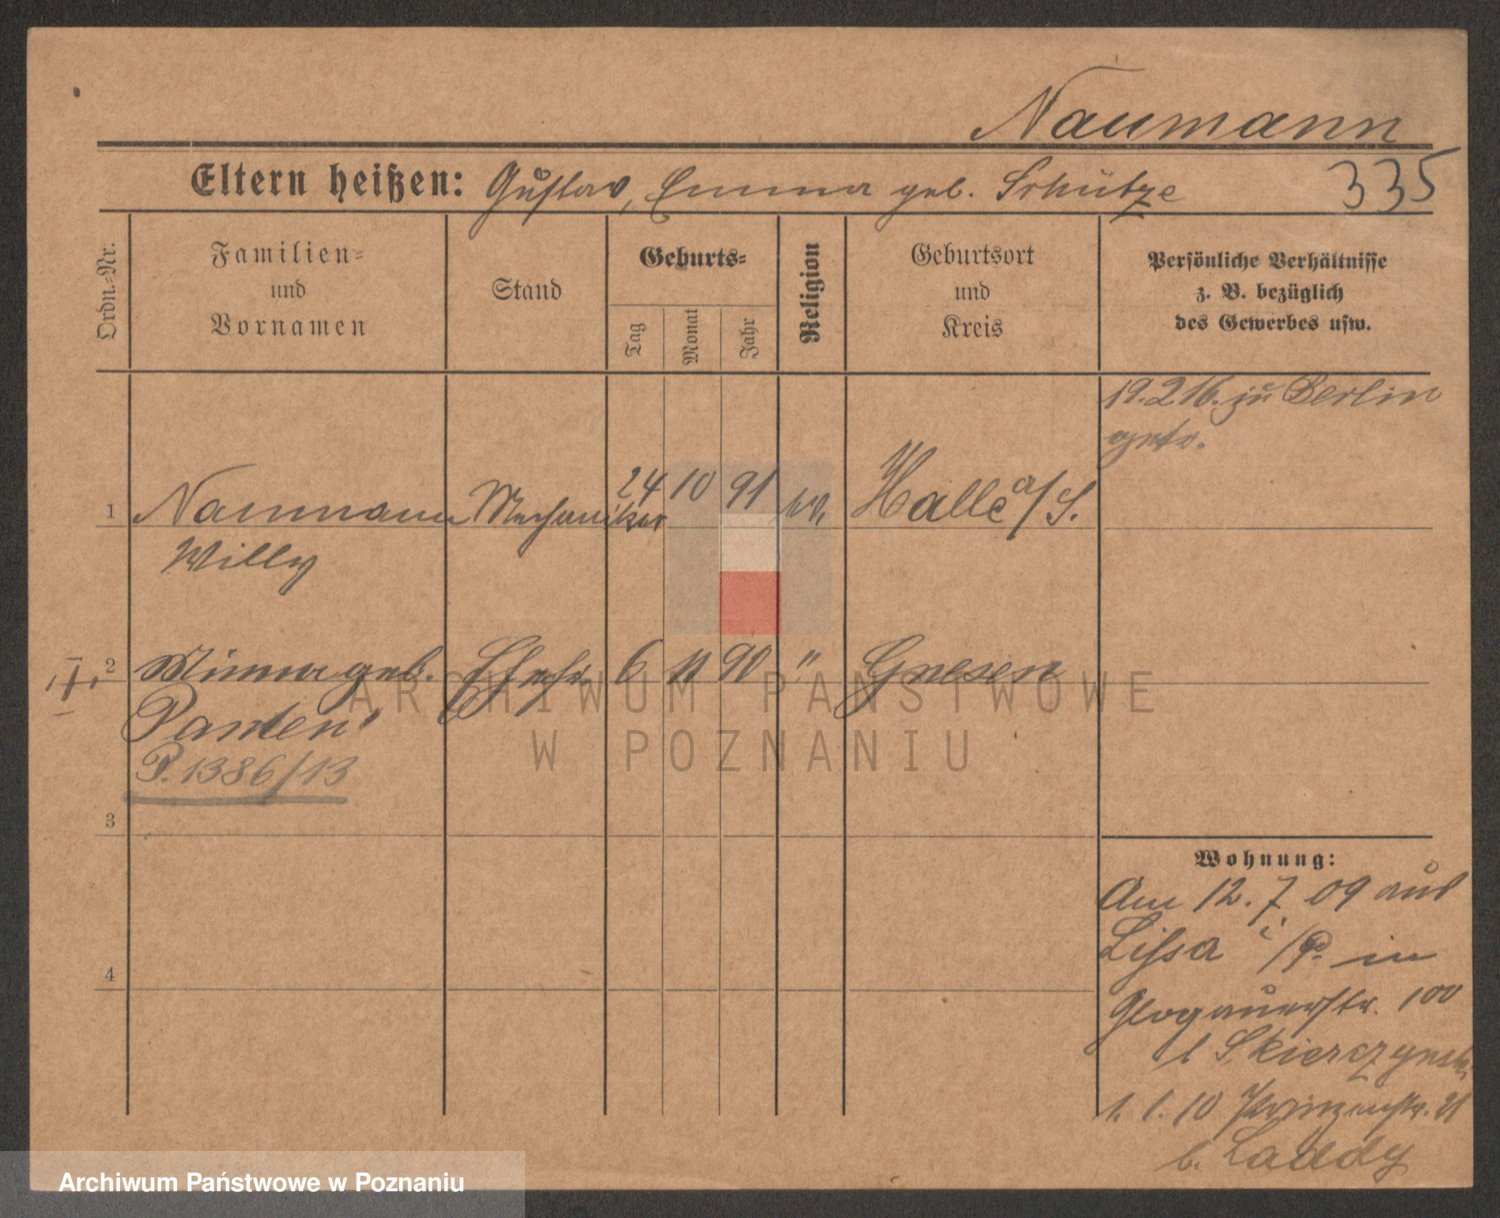 Naumann
335
Eltern heißen: Gustav, Emma geb. Schütze
Ordn.-Nr.
Familien-
und
Vornamen
Stand
Geburts-
Tag
Monat
Jahr
Religion
Geburtsort
und
Kreis
Persönliche Verhältnisse
z. B. bezüglich
des Gewerbes usw.
19.2.16. zu Berlin
getr.
1 Naumann Mechaniker 24 10 91 ev. Halle a/S.
Willy
2 Minna geb. Ehefr. 6 11 90 " Gnesen
Panten
P. 1386/13
3
4
Wohnung:
Am 12. 7. 09 aus
Lissa i/P. in
Glogauerstr. 100
b
1. 1. 10 Prinzenstr. 21
b. Laddy
ARCHIWUM PAŃSTWOWE
W POZNANIU
Archiwum Państwowe w Poznaniu